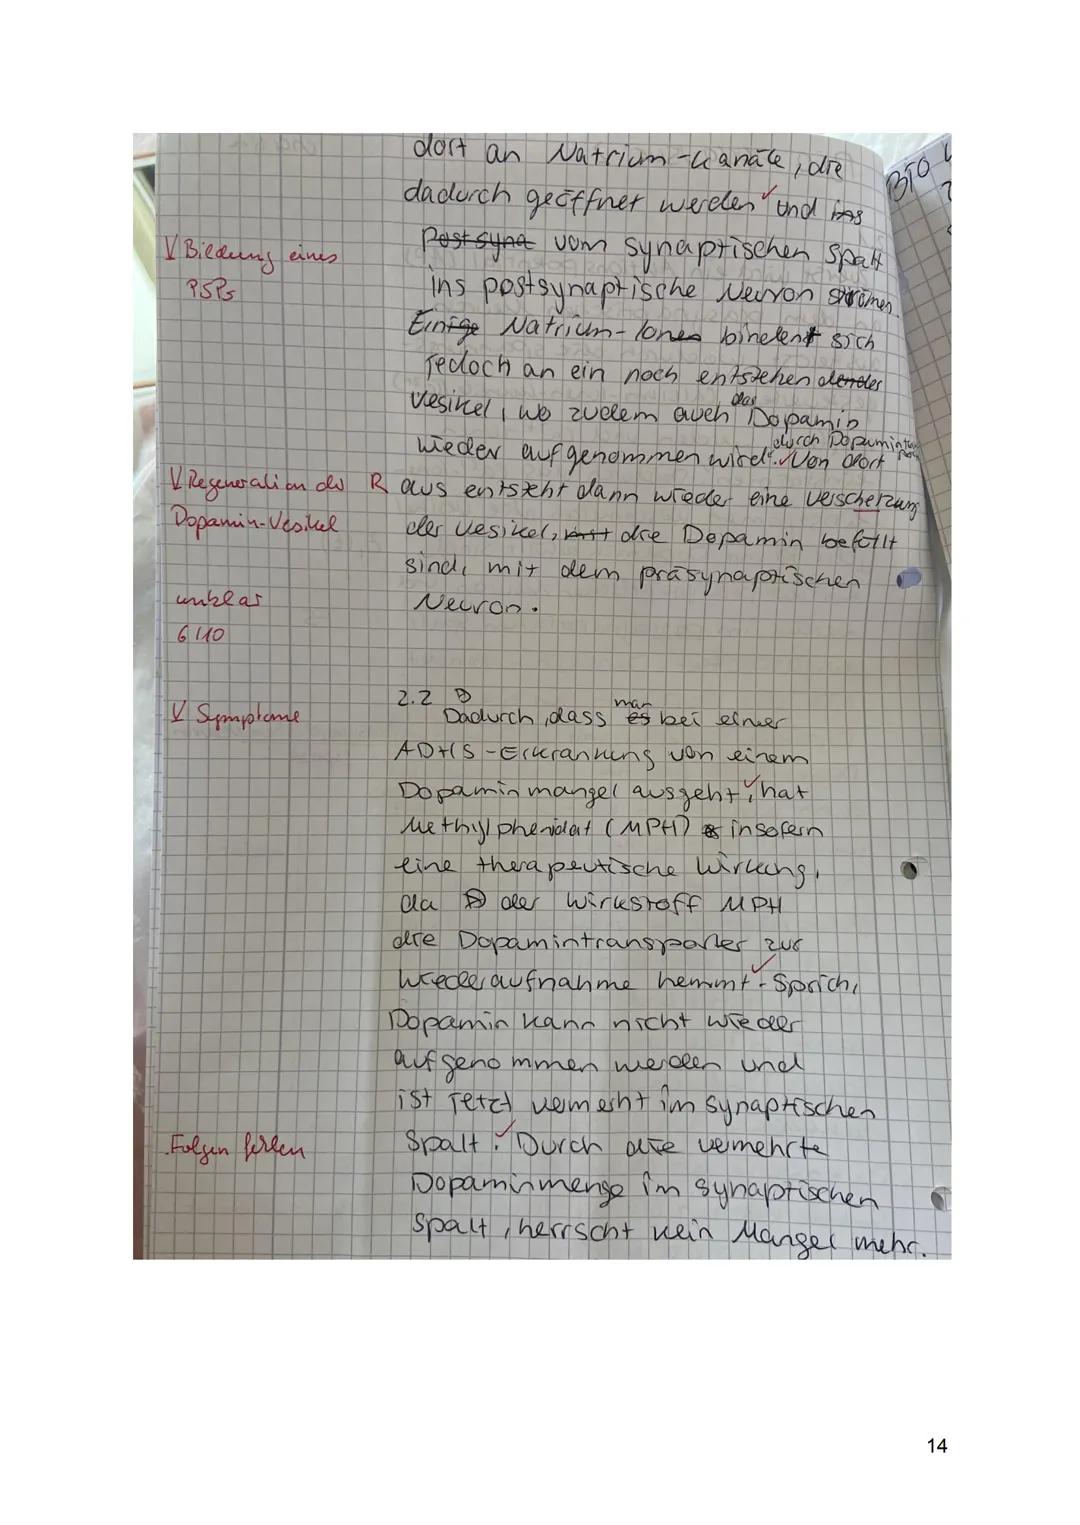 dort an Natrium-Kanäle, die
BIO
dadurch geöffnet werden und ins
Bildung eines
PSPs
Postsyna vom synaptischen Spalt
ins postsynaptische Neuron strömen.
Einige Natrium-Ionen binden sich
jedoch an ein noch entstehendes
Vesikel, wo zudem auch das Dopamin
wieder aufgenommen wird durch Dopamin. Von dort
Regeneration der
Dopamin-Vesikel
R aus entsteht dann wieder eine Verschelzung
der Vesikel, die Dopamin befüllt
sind, mit dem präsynaptischen
unklar
Neuron.
6/10
2.2
Symptome
Dadurch, dass es man bei einer
ADHS-Erkrankung von einem
Dopaminmangel ausgeht, hat
Methylphenidat (MPH) insofern
eine therapeutische Wirkung,
da der Wirkstoff MPH
die Dopamintransporter zur
Wiederaufnahme hemmt. Sprich,
Dopamin kann nicht wieder
aufgenommen werden und
ist jetzt vermehrt im synaptischen
Folgen fehlen
Spalt. Durch die vermehrte
Dopaminmenge im synaptischen
Spalt, herrscht kein Mangel mehr.
14